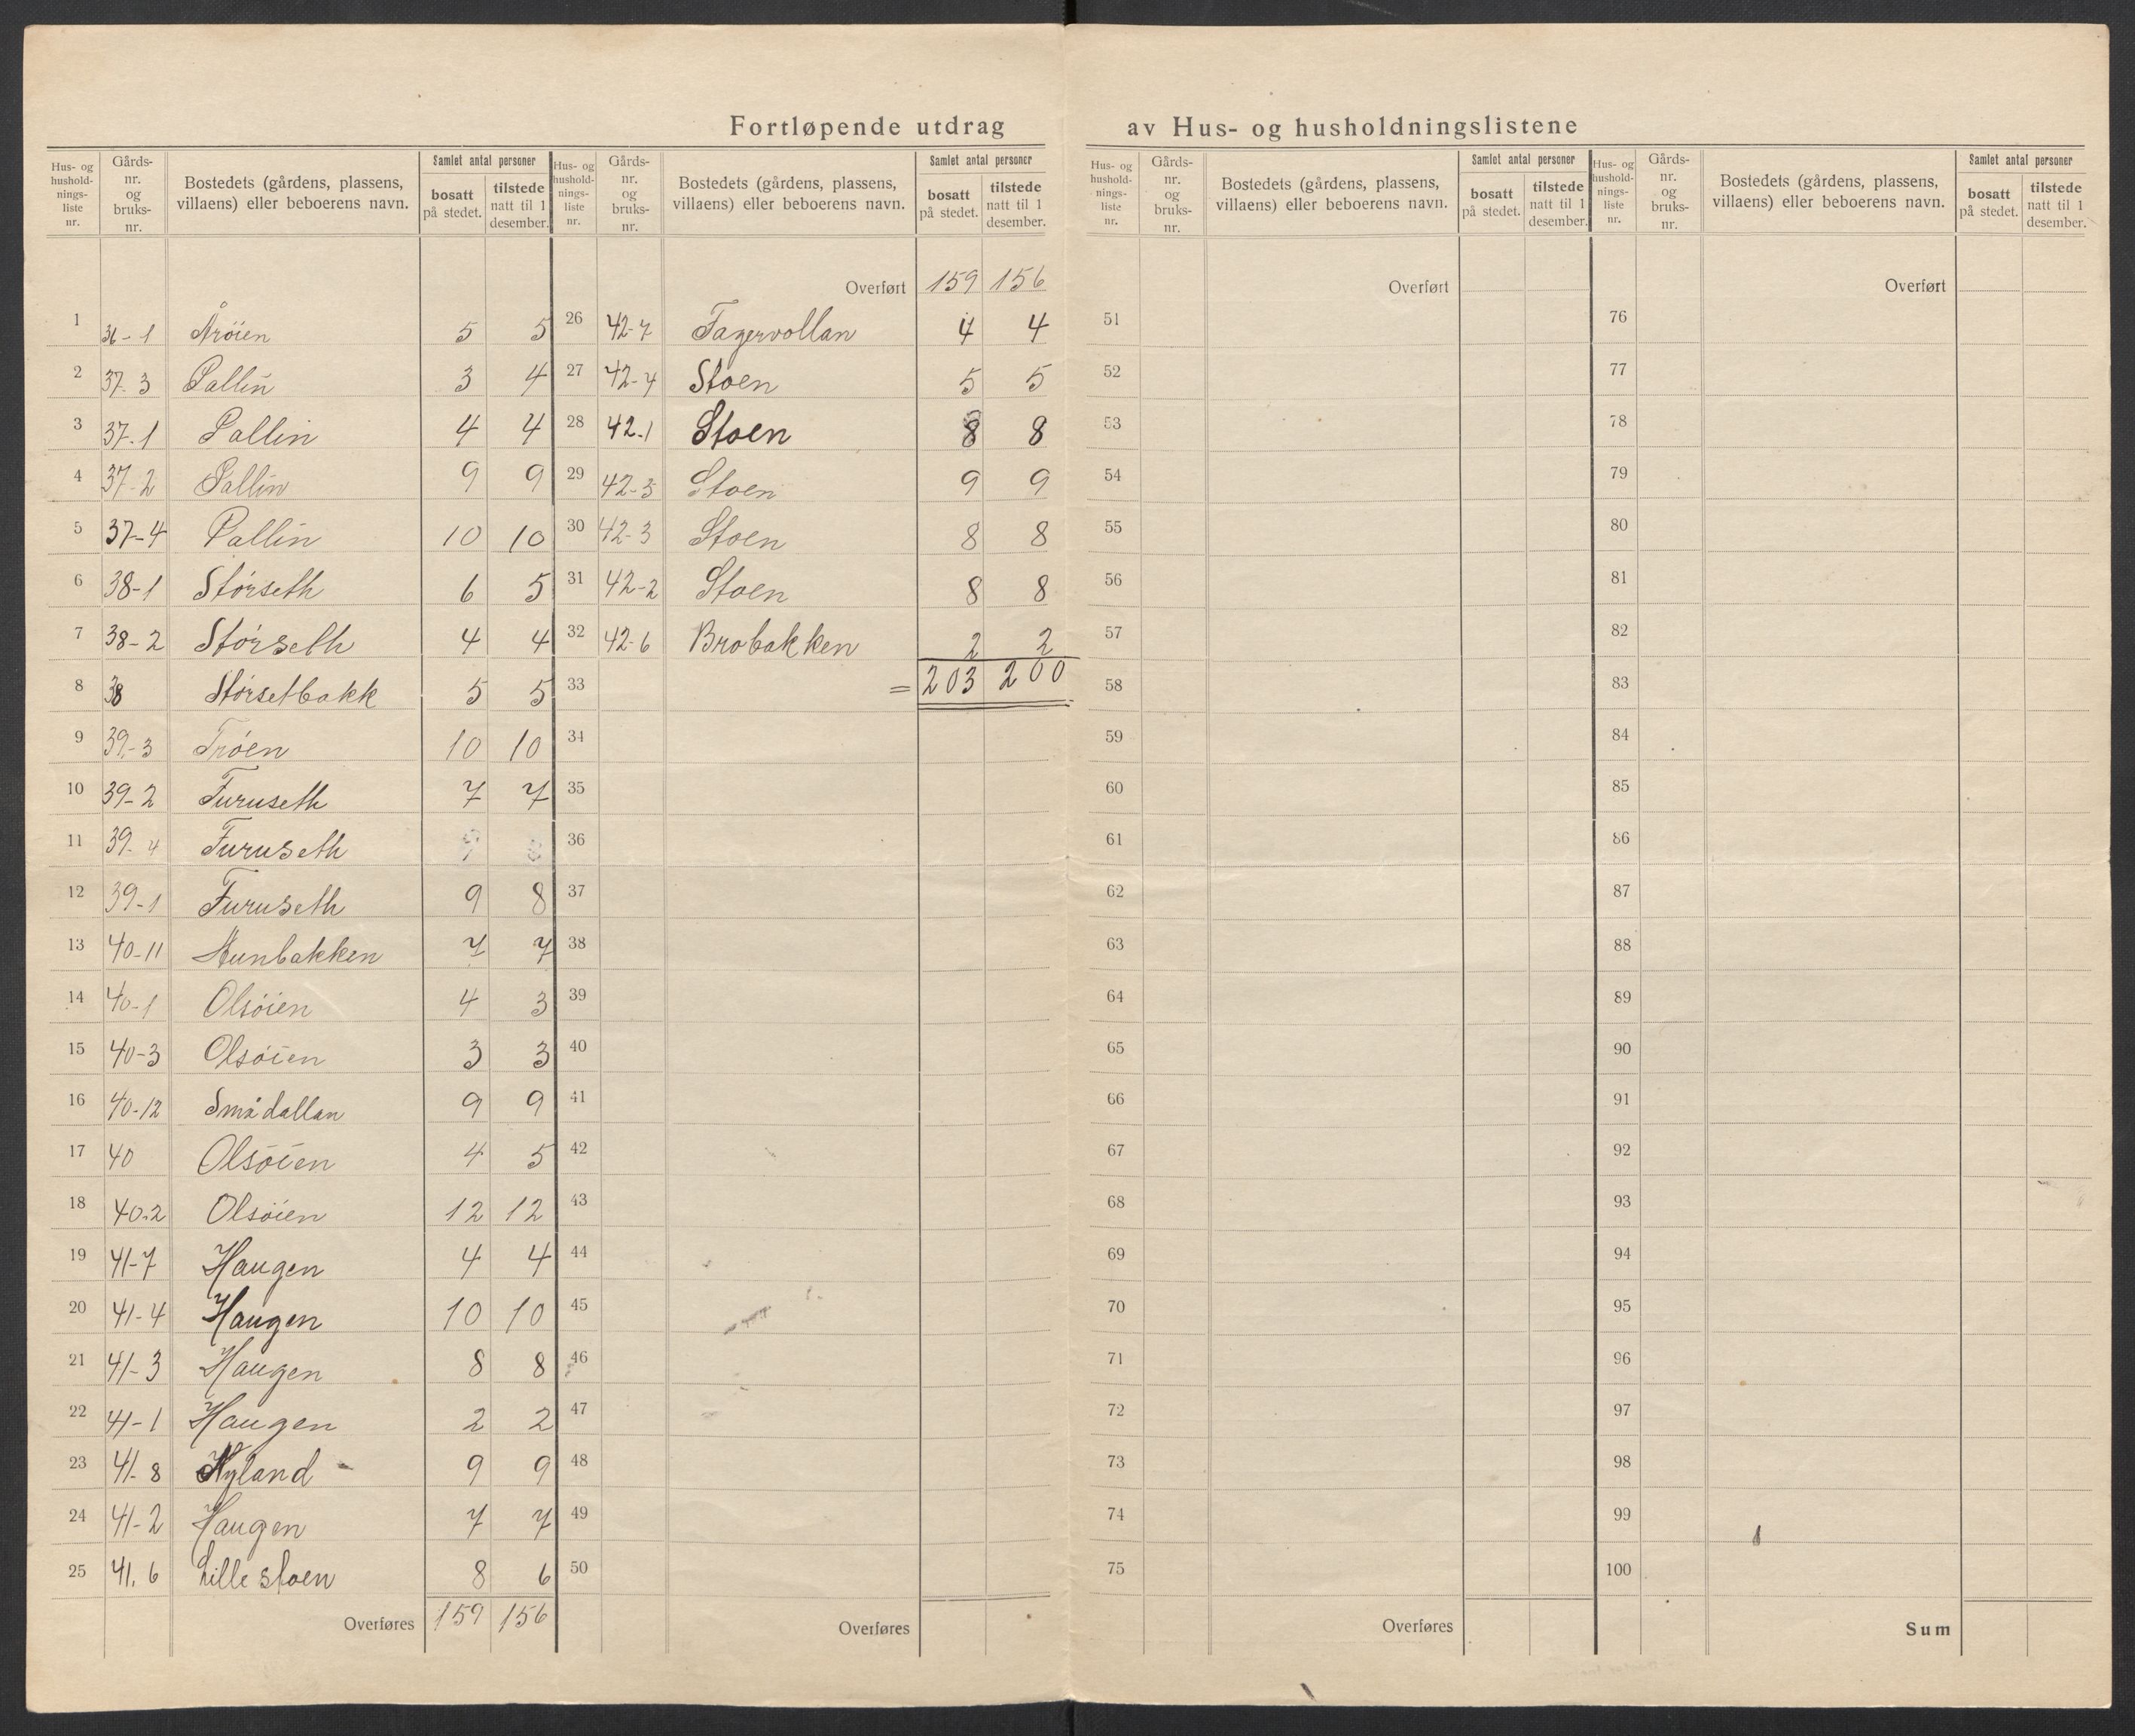 Fortløpende utdrag av Hus- og husholdningslistene
Hus- og husholdningsliste nr. | Gårds-nr. og bruks-nr. | Bostedets (gårdens, plassens, villaens) eller beboerens navn. | Samlet antal personer | bosatt på stedet. | tilstede natt til 1 desember.
1 36-1 Årøien 5 5
2 37-3 Pallin 3 4
3 37-1 Pallin 4 4
4 37-2 Pallin 9 9
5 37-4 Pallin 10 10
6 38-1 Störseth 6 5
7 38-2 Störseth 4 4
8 38 Störsetbakk 5 5
9 39-3 Tröen 10 10
10 39-2 Furuseth 7 7
11 39-4 Furuseth
12 39-1 Furuseth 9 8
13 40-11 Aunbakken 7 7
14 40-1 Olsöien 4 3
15 40-3 Olsöien 3 3
16 40-12 Smådallan 9 9
17 40 Olsöien 4 5
18 40-2 Olsöien 12 12
19 41-7 Haugen 4 4
20 41-4 Haugen 10 10
21 41-3 Haugen 8 8
22 41-1 Haugen 2 2
23 41-8 Nyland 9 9
24 41-2 Haugen 7 7
25 41.6 Lille stoen 8 6
Overføres 159 156
Hus- og husholdningsliste nr. | Gårds-nr. og bruks-nr. | Bostedets (gårdens, plassens, villaens) eller beboerens navn. | Samlet antal personer | bosatt på stedet. | tilstede natt til 1 desember.
Overført 159 156
26 42-7 Fagervollan 4 4
27 42-4 Stoen 5 5
28 42-1 Stoen 8 8
29 42-5 Stoen 9 9
30 42-3 Stoen 8 8
31 42-2 Stoen 8 8
32 42-6 Brobakken 2 2
33 = 203 200
34
35
36
37
38
39
40
41
42
43
44
45
46
47
48
49
50
Overføres
Hus- og husholdningsliste nr. | Gårds-nr. og bruks-nr. | Bostedets (gårdens, plassens, villaens) eller beboerens navn. | Samlet antal personer | bosatt på stedet. | tilstede natt til 1 desember.
Overført
51
52
53
54
55
56
57
58
59
60
61
62
63
64
65
66
67
68
69
70
71
72
73
74
75
Overføres
Hus- og husholdningsliste nr. | Gårds-nr. og bruks-nr. | Bostedets (gårdens, plassens, villaens) eller beboerens navn. | Samlet antal personer | bosatt på stedet. | tilstede natt til 1 desember.
Overført
76
77
78
79
80
81
82
83
84
85
86
87
88
89
90
91
92
93
94
95
96
97
98
99
100
Sum